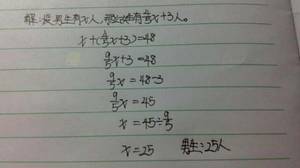 解:设男生有x人,那么女生有4/5x+3人。
x+(4/5x+3)=48
9/5x+3=48
9/5x=48-3
9/5x=45
x=45÷9/5
x=25 男生:25人